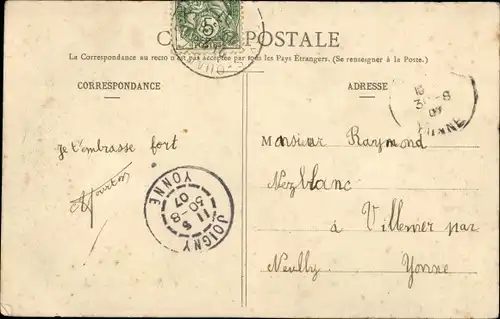 C POSTALE
5
La Correspondance au recto n'est pas acceptée par tous les Pays Etrangers. (Se renseigner à la Poste.)
CORRESPONDANCE
ADRESSE
Je t'embrasse fort
JOIGNY
11 5
30-8
07
YONNE
Monsieur Raymond
à Villemer par
Neuilly Yonne